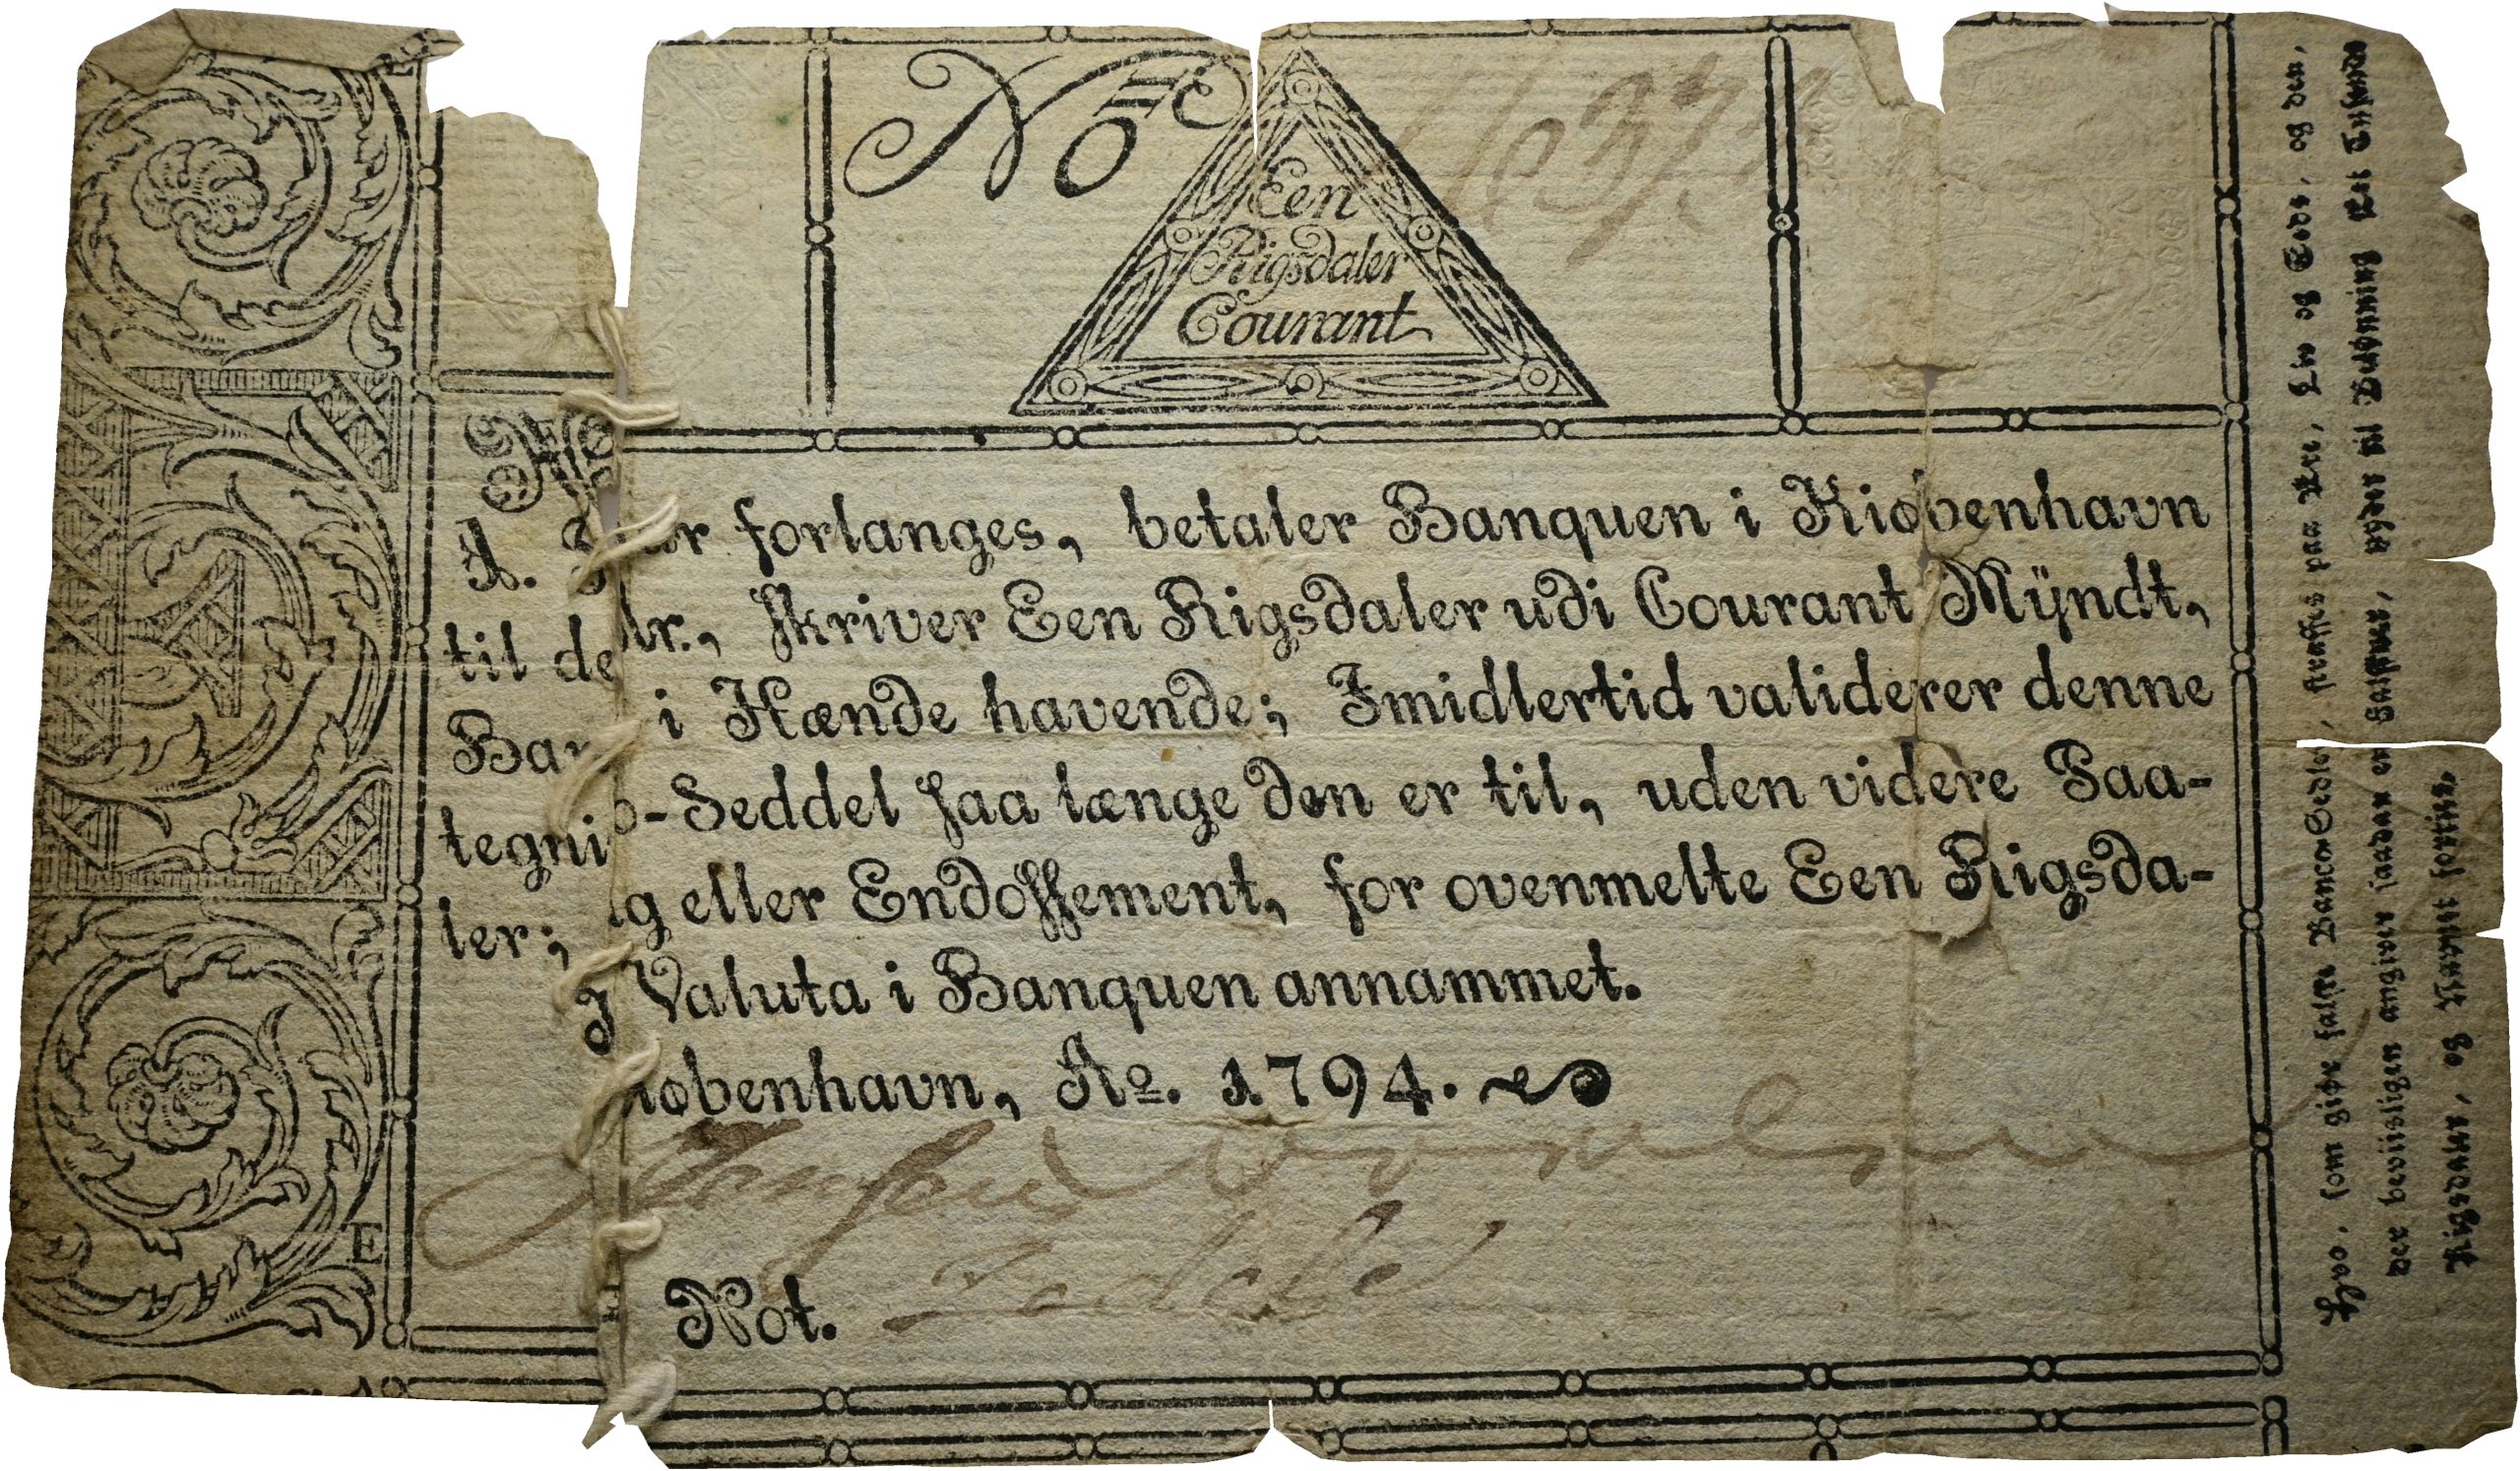 No
Een
Rigsdaler
Courant
ar forlanges, betaler Banquen i Kiøbenhavn
A. dlr., skriver Een Rigsdaler udi Courant Mÿndt,
til de i Hænde havende; Imidlertid validerer denne
Ban o-Seddel saa længe den er til, uden videre Paa-
tegni g eller Endossement, for ovenmelte Een Rigsda-
ler; Valuta i Banquen annammet.
iøbenhavn, Ao. 1794.
E
Not.
Hvo, som giør falske Banco-Sedler, straffes paa Ære, Liv og Gods, og den,
der beviisligen angiver saadan en Falskner, nyder til Belønning Eet Tusinde
Rigsdaler, og Navnet forties.